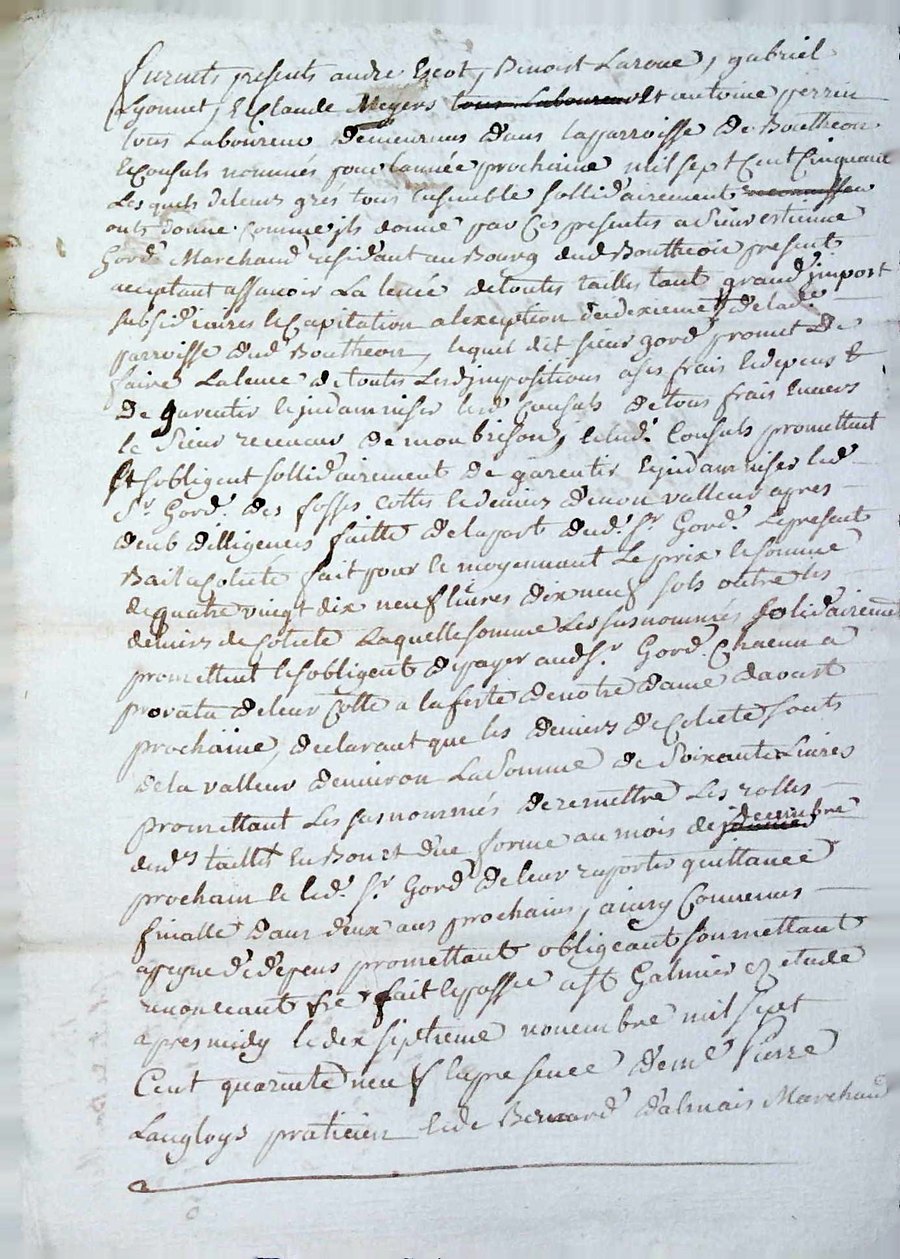 furents presents andre Escot, Benoist Laroue, gabriel
Lyonnet, Et Claude Meyers tous Laboureurs Et antoine perrin
tous Laboureur demeurans dans la parroisse de Boutheon
Et Consuls nommés pour l'année prochaine mil sept Cent Cinquant
Les quels de leurs grés tous ensemble sollidairement
onts donné comme ils donne par Ces presentes a Sieur estienne
Gord Marchand residant au Bourg dud Boutheon present
acceptant assavoir La levée de toutes tailles tant grand import
subsidiaires et Capitation a l'exception du dixieme de lade
parroisse dud Boutheon, lequel dit sieur gord promet de
faire La levée de toutes Lesd impositions a ses frais et depens Et
De garentir et indamniser lesd Consuls de tous frais Envers
le Sieur receveur de monbrison, et lesd. Consuls promettent
Et sobligent sollidairement de garentir et indamniser led
Sr. Gord. des fosses cottes et deniers de non valleur apres
deub dilligences faitte de la part dud. Sr. Gord. Le present
Bail a Colecte fait pour et moyennant Le prix et somme
de quatre vingt dix neuf livres dix neuf sols outre les
deniers de Colecte Laquelle somme Les susnommés solidairement
promettent et sobligent de payer aud Sr. Gord. Chacun a
provata de leur Cotte a la feste de notre dame d'avout
prochaine, declarant que les deniers de Colecte sonts
de la valleur d'environ La Somme de Soixante Livres
promettant Les susnommés de remettre Les rolles
desds taillet En Bon et due forme au mois de decembre
prochain et led. Sr. Gord de leur raporter quittance
finalle dans deux ans prochains, ainsy Convenus
a peyne de depens promettant obligeant soumettant
renonceant fié fait et passé a St Galmier ez etude
apres midy le dix siptieme novembre mil sept
Cent quarente neuf En presence de me Pierre
Langloys praticien et de Bernard dalmais Marchand